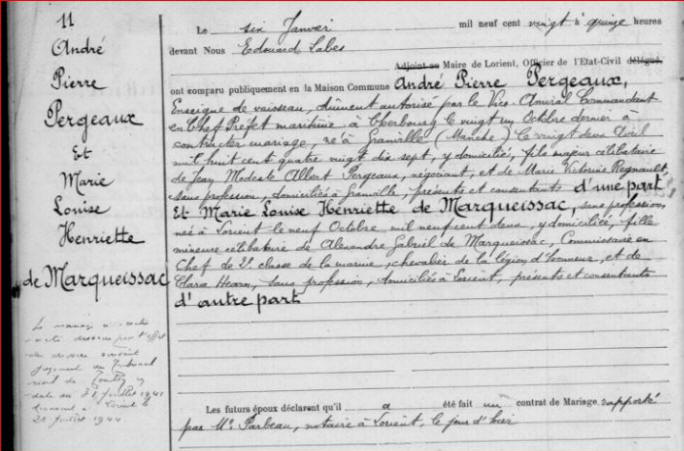 11
André
Pierre
Pergeaux
Et
Marie
Louise
Henriette
de Marqueissac
Le six Janvier mil neuf cent vingt à quinze heures
devant Nous Edouard Labes
Adjoint au Maire de Lorient, Officier de l'Etat-Civil délégué,
ont comparu publiquement en la Maison Commune André Pierre Pergeaux,
Enseigne de vaisseau, dûment autorisé par le Vice-Amiral Commandant
en Chef Préfet maritime à Cherbourg le vingt un Octobre dernier à
contracter mariage, né à Granville (Manche) le vingt deux Avril
mil huit cent quatre vingt dix sept, y domicilié, fils majeur célibataire
de Jean Modeste Albert Pergeaux, négociant, et de Marie Victorine Regnault,
sans profession, domiciliés à Granville, présents et consentants d'une part
Et Marie Louise Henriette de Marqueissac, sans profession,
née à Lorient le neuf Octobre mil neuf cent deux, y domiciliée, fille
mineure célibataire de Alexandre Gabriel de Marqueissac, Commissaire en
Chef de 2e classe de la marine, chevalier de la légion d'honneur, et de
Clara Hearn, sans profession, domiciliés à Lorient, présents et consentants
d'autre part
Le mariage
acte dessous par l'effet
du divorce suivant
jugement du Tribunal
civil de Toulon
date du 31 Juillet 1941
Lorient le
Juillet 1944
Les futurs époux déclarent qu'il a été fait un contrat de Mariage rapporté
par Me Parbeau, notaire à Lorient, le jour d'hier